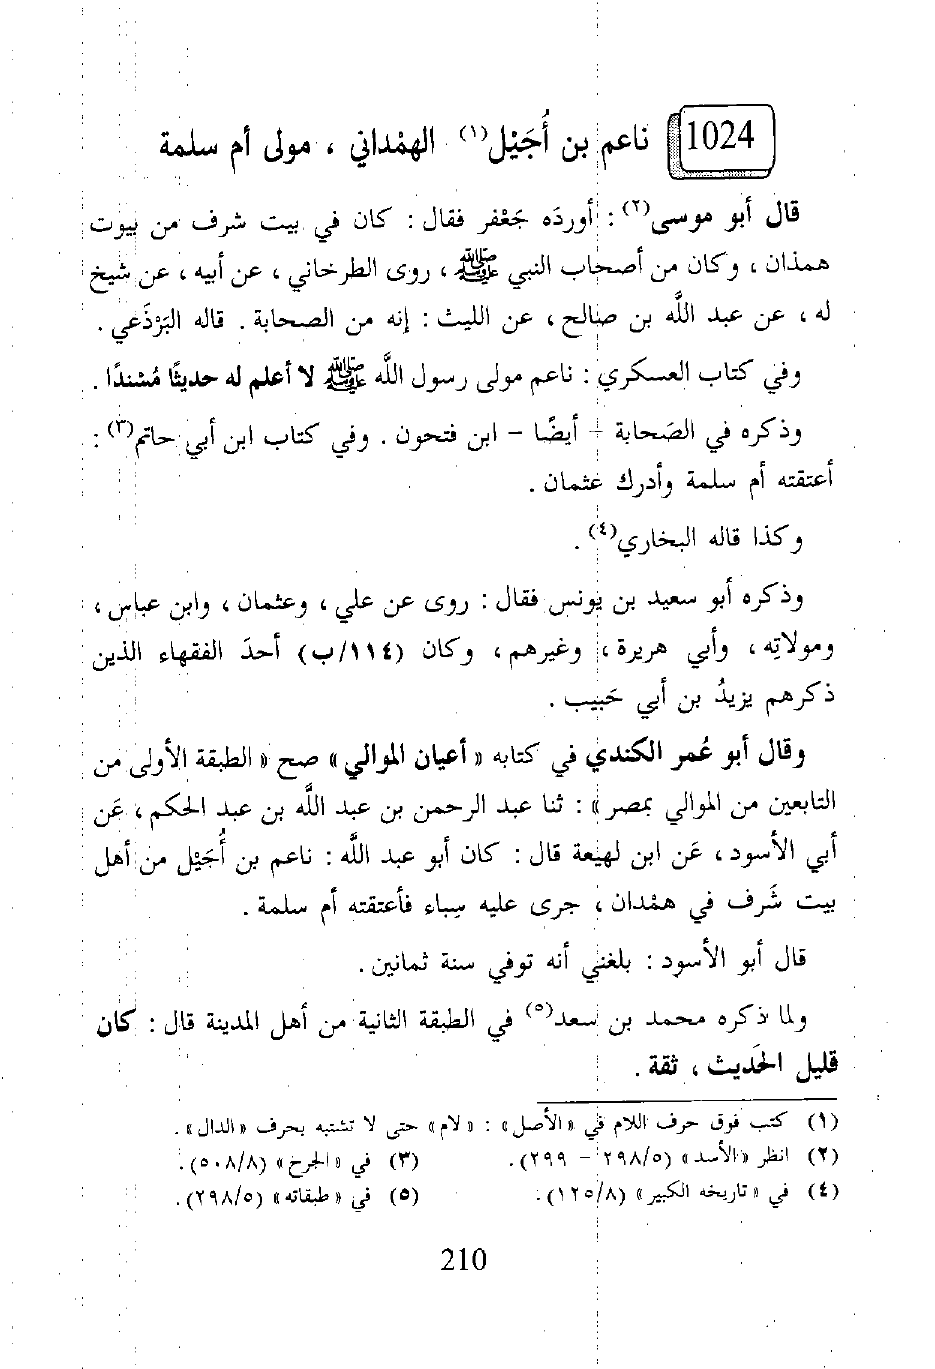 1024 ناعم بن أُجَيْل(١) الهمْداني ، مولى أم سلمة
قال أبو موسى(٢) : أوردَه جَعْفر فقال : كان في بيت شرف من بيوت
همذان ، وكان من أصحاب النبي ﷺ ، روى الطرخاني ، عن أبيه ، عن شيخ
له ، عن عبد اللَّه بن صالح ، عن الليث : إنه من الصحابة . قاله البَرْذَعي .
وفي كتاب العسكري : ناعم مولى رسول اللَّه ﷺ لا أعلم له حديثًا مُسْندًا .
وذكره في الصَحابة - أيضًا - ابن فتحون . وفي كتاب ابن أبي حاتم(٣) :
أعتقته أم سلمة وأدرك عثمان .
وكذا قاله البخاري(٤) .
وذكره أبو سعيد بن يونس فقال : روى عن علي ، وعثمان ، وابن عباس ،
ومولاتِه ، وأبي هريرة ، وغيرهم ، وكان (١١٤/ب) أحدَ الفقهاء الذين
ذكرهم يزيدُ بن أبي حَبيب .
وقال أبو عُمر الكندي في كتابه « أعيان الموالي » صح « الطبقة الأولى من
التابعين من الموالي بمصر » : ثنا عبد الرحمن بن عبد اللَّه بن عبد الحكم ، عَن
أبي الأسود ، عَن ابن لهيعة قال : كان أبو عبد اللَّه : ناعم بن أُجَيْل من أهل
بيت شَرف في همْدان ، جرى عليه سِباء فأعتقته أم سلمة .
قال أبو الأسود : بلغني أنه توفي سنة ثمانين .
ولما ذكره محمد بن سعد(٥) في الطبقة الثانية من أهل المدينة قال : كان
قليل الحَديث ، ثقة .
(١) كتب فوق حرف اللام في «الأصل» : « لام» حتى لا تشتبه بحرف «الدال» .
(٢) انظر «الأسد» (٢٩٨/٥ - ٢٩٩). (٣) في «الجرح» (٥٠٨/٨).
(٤) في «تاريخه الكبير» (١٢٥/٨). (٥) في «طبقاته» (٢٩٨/٥).
210